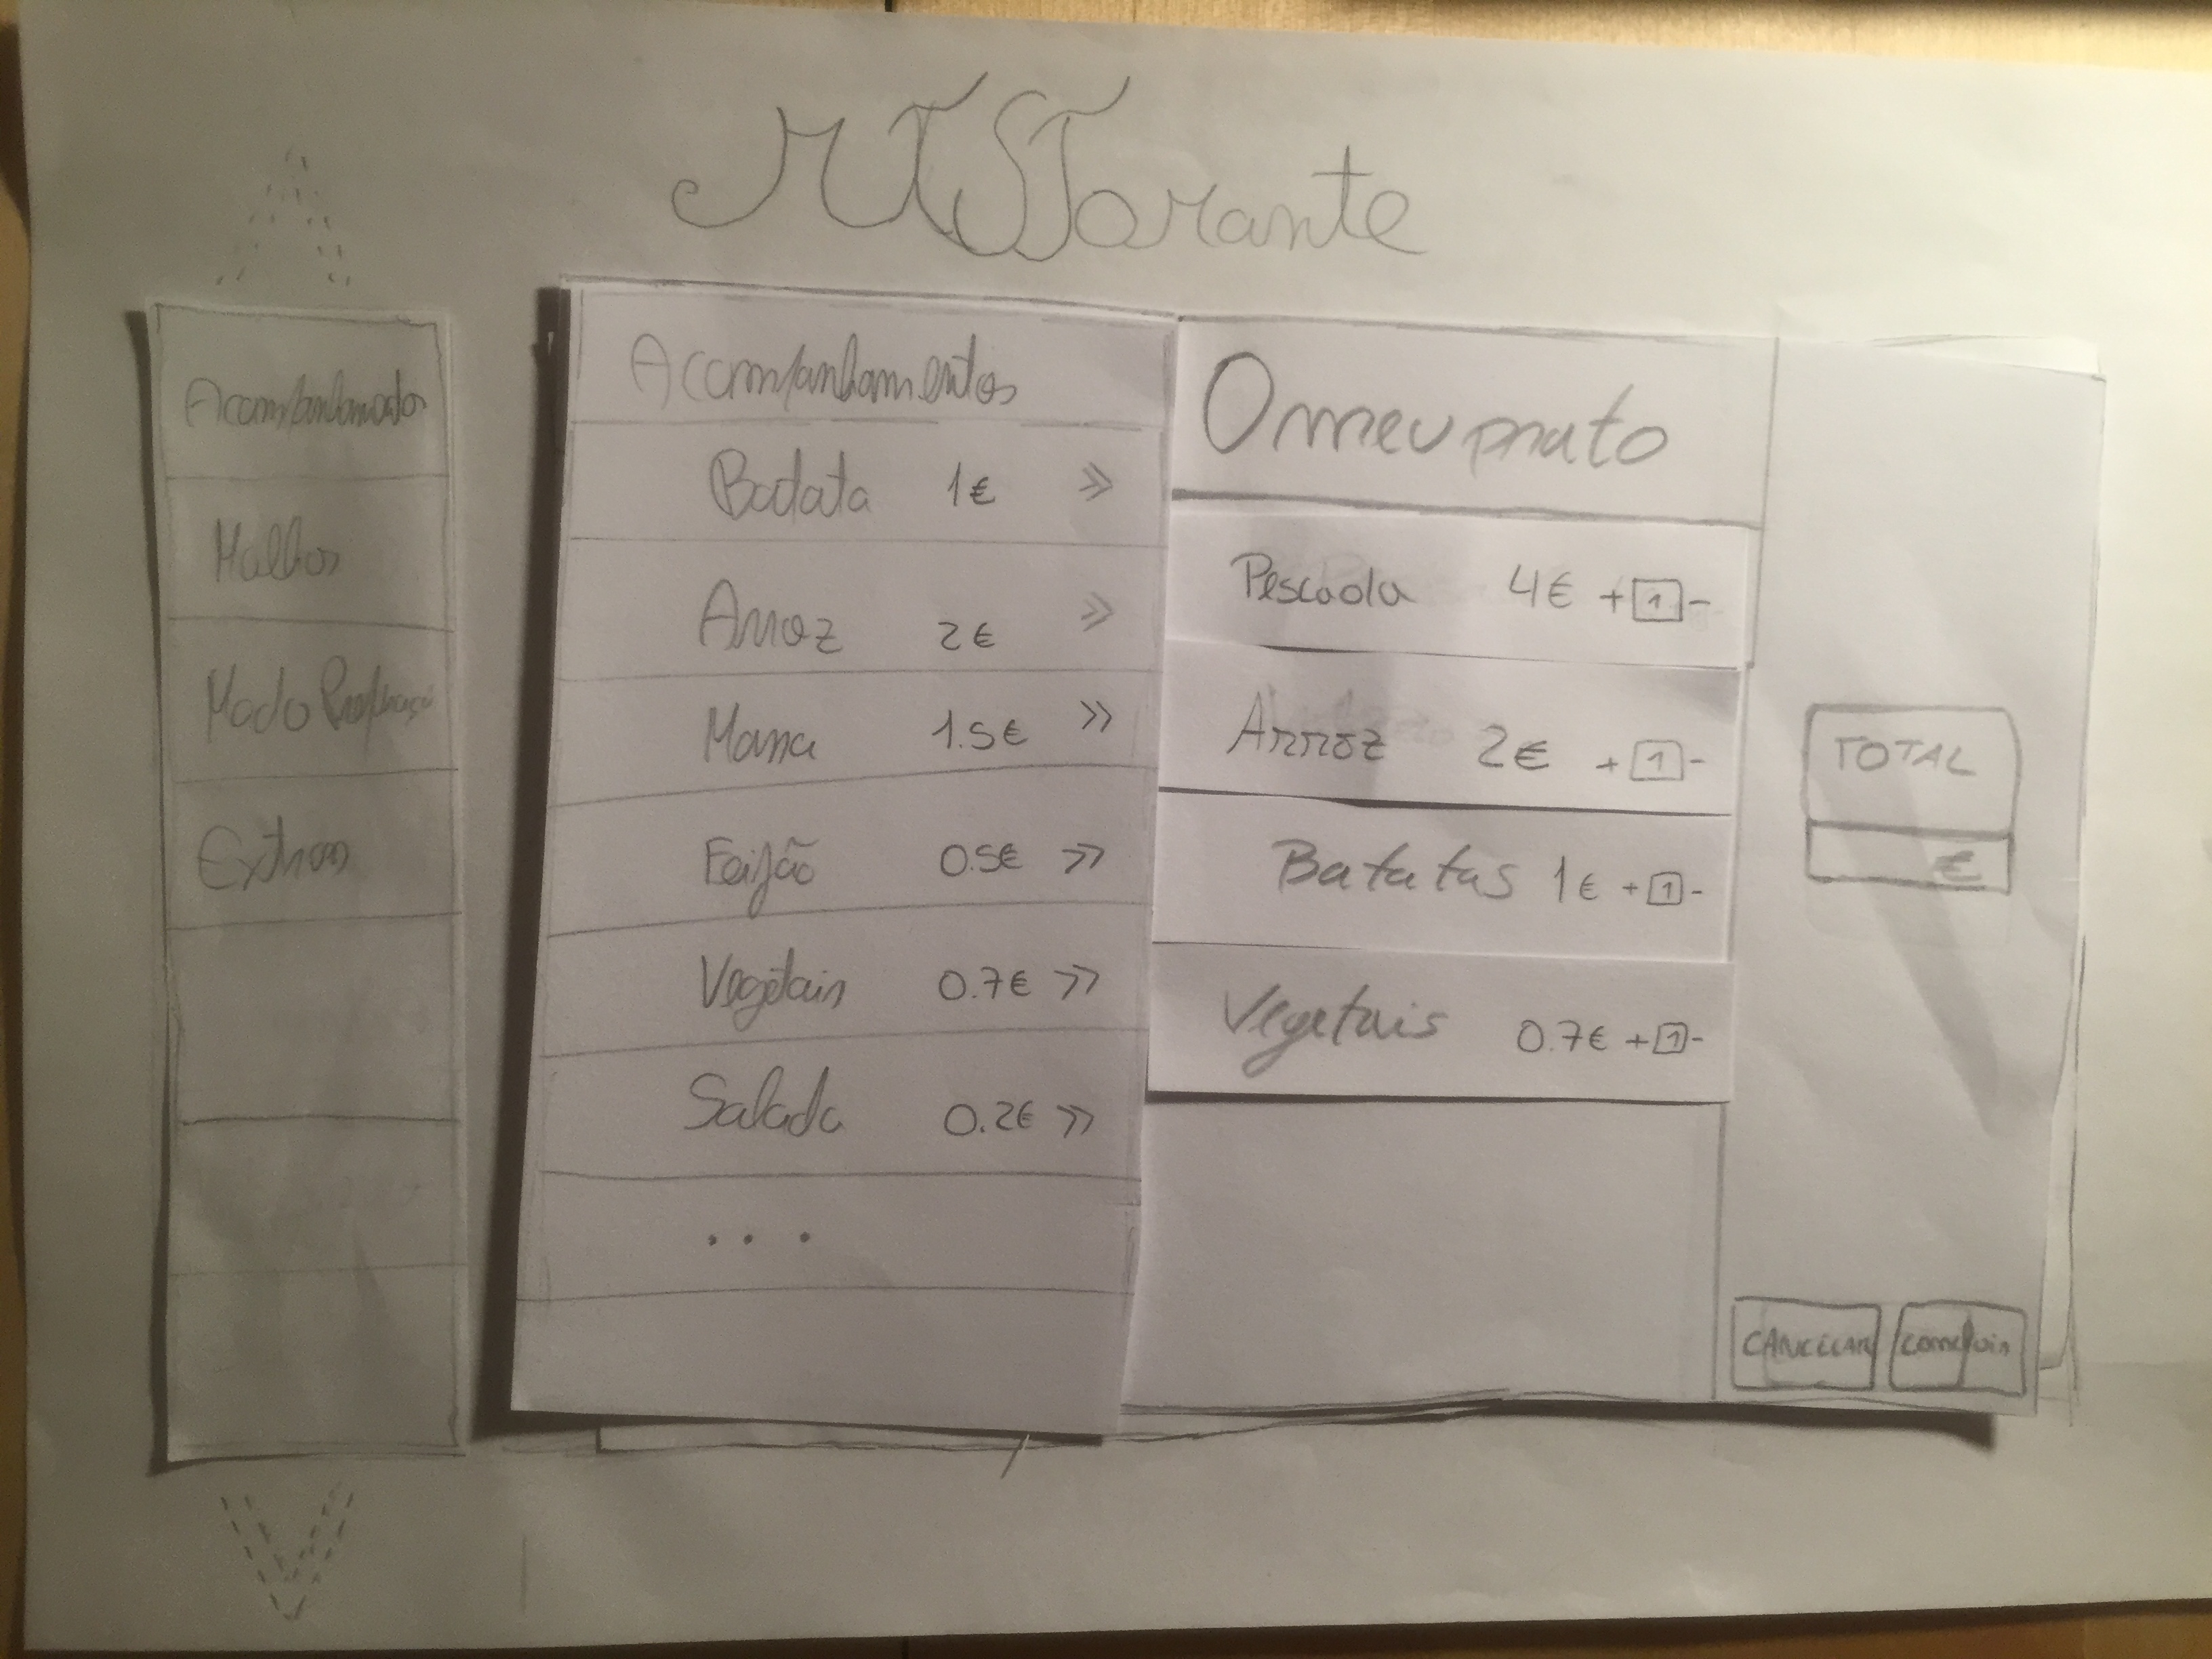 Acompanhamentos
Molhos
Modo
Extras
Acompanhamentos
Batata 1€ >>
Arroz 2€ >>
Massa 1.5€ >>
Feijão 0.5€ >>
Vegetais 0.7€ >>
Salada 0.2€ >>
...
O meu prato
Pescada 4€ + 1 -
Arroz 2€ + 1 -
Batatas 1€ + 1 -
Vegetais 0.7€ + 1 -
TOTAL
€
CANCELAR